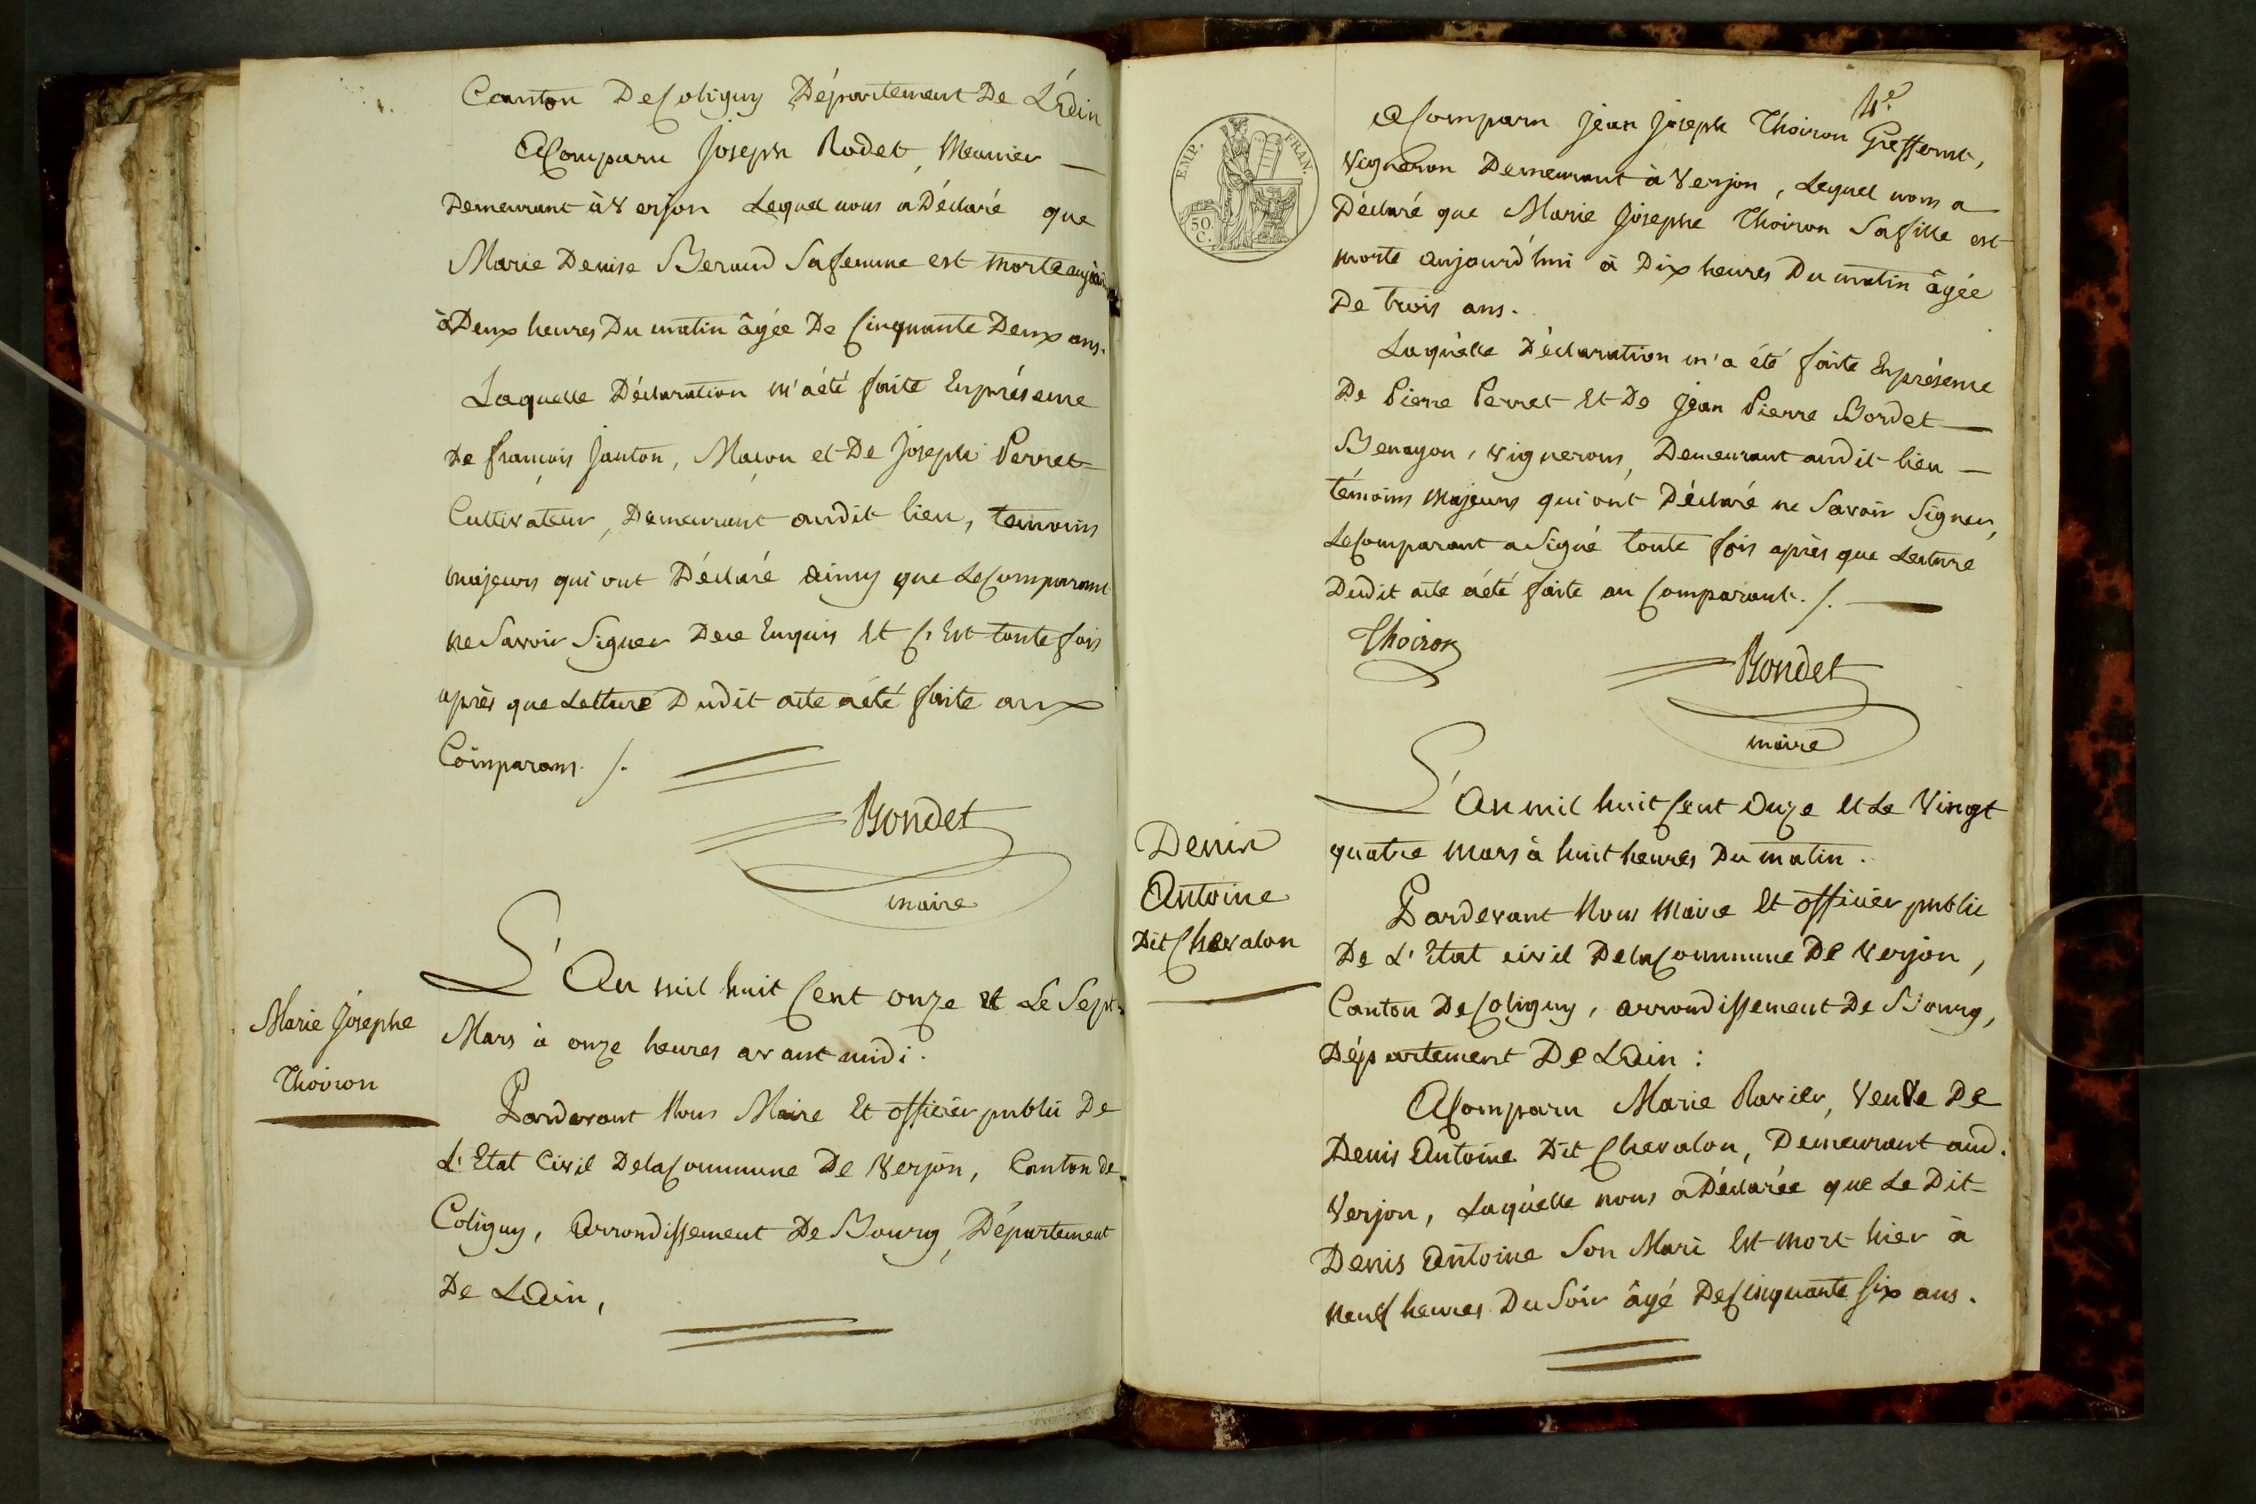 Canton De Coligny Département De L'Ain
A Comparu Joseph Rodet, Meunier —
Demeurant à Verjon Lequel nous a Déclaré que
Marie Denise Beraud Sa femme est morte
à Deux heures Du matin âgée De Cinquante Deux ans.
Laquelle Déclaration m'a été faite En présence
de françois Janton, Maçon et De Joseph Perret
Cultivateur, Demeurant audit lieu, temoins
majeurs qui ont Déclaré ainsy que Le Comparant
ne Savoir Signer Dece Enquis Et C'est toute fois
après que Letture Dudit acte a été faite aux
Comparans ./.
Bondet
maire
Marie Josephe
Thoiron
L'An mil huit Cent onze et Le Sept
Mars à onze heures avant midi.
Pardevant Nous Maire Et officier public De
L'Etat Civil De la Commune De Verjon, Canton de
Coligny, Arrondissement De Bourg, Département
De L'Ain,
EMP. FRAN.
50
C.
4e
A Comparu Jean Joseph Thoiron Greffernt,
Vigneron Demeurant à Verjon, Lequel nous a
Déclaré que Marie Josephe Thoiron Sa fille est
morte aujourd'hui à Dix heures Du matin âgée
De trois ans.
Laquelle Déclaration m'a été faite En présence
De Pierre Perret Et De Jean Pierre Bordet —
Benayon, vignerons, Demeurant audit lieu —
témoins Majeurs qui ont Déclaré ne Savoir Signer,
Le Comparant a Signé toute fois après que Lecture
Dudit acte a été faite au Comparant ./. —
Thoiron
Bondet
maire
Denin
Antoine
Dit Chevalon
L'An mil huit Cent Onze Et Le Vingt
quatre Mars à huit heures Du matin.
Pardevant Nous Maire Et officier public
De L'Etat civil De la Commune De Verjon,
Canton De Coligny, arrondissement De Bourg,
Département De L'Ain :
A Comparu Marie Ravier, Veuve De
Denis Antoine Dit Chevalon, Demeurant aud.
Verjon, Laquelle nous a Déclarée que Le Dit
Denis Antoine Son Mari Est mort hier à
neuf heures Du Soir âgé De Cinquante Six ans.